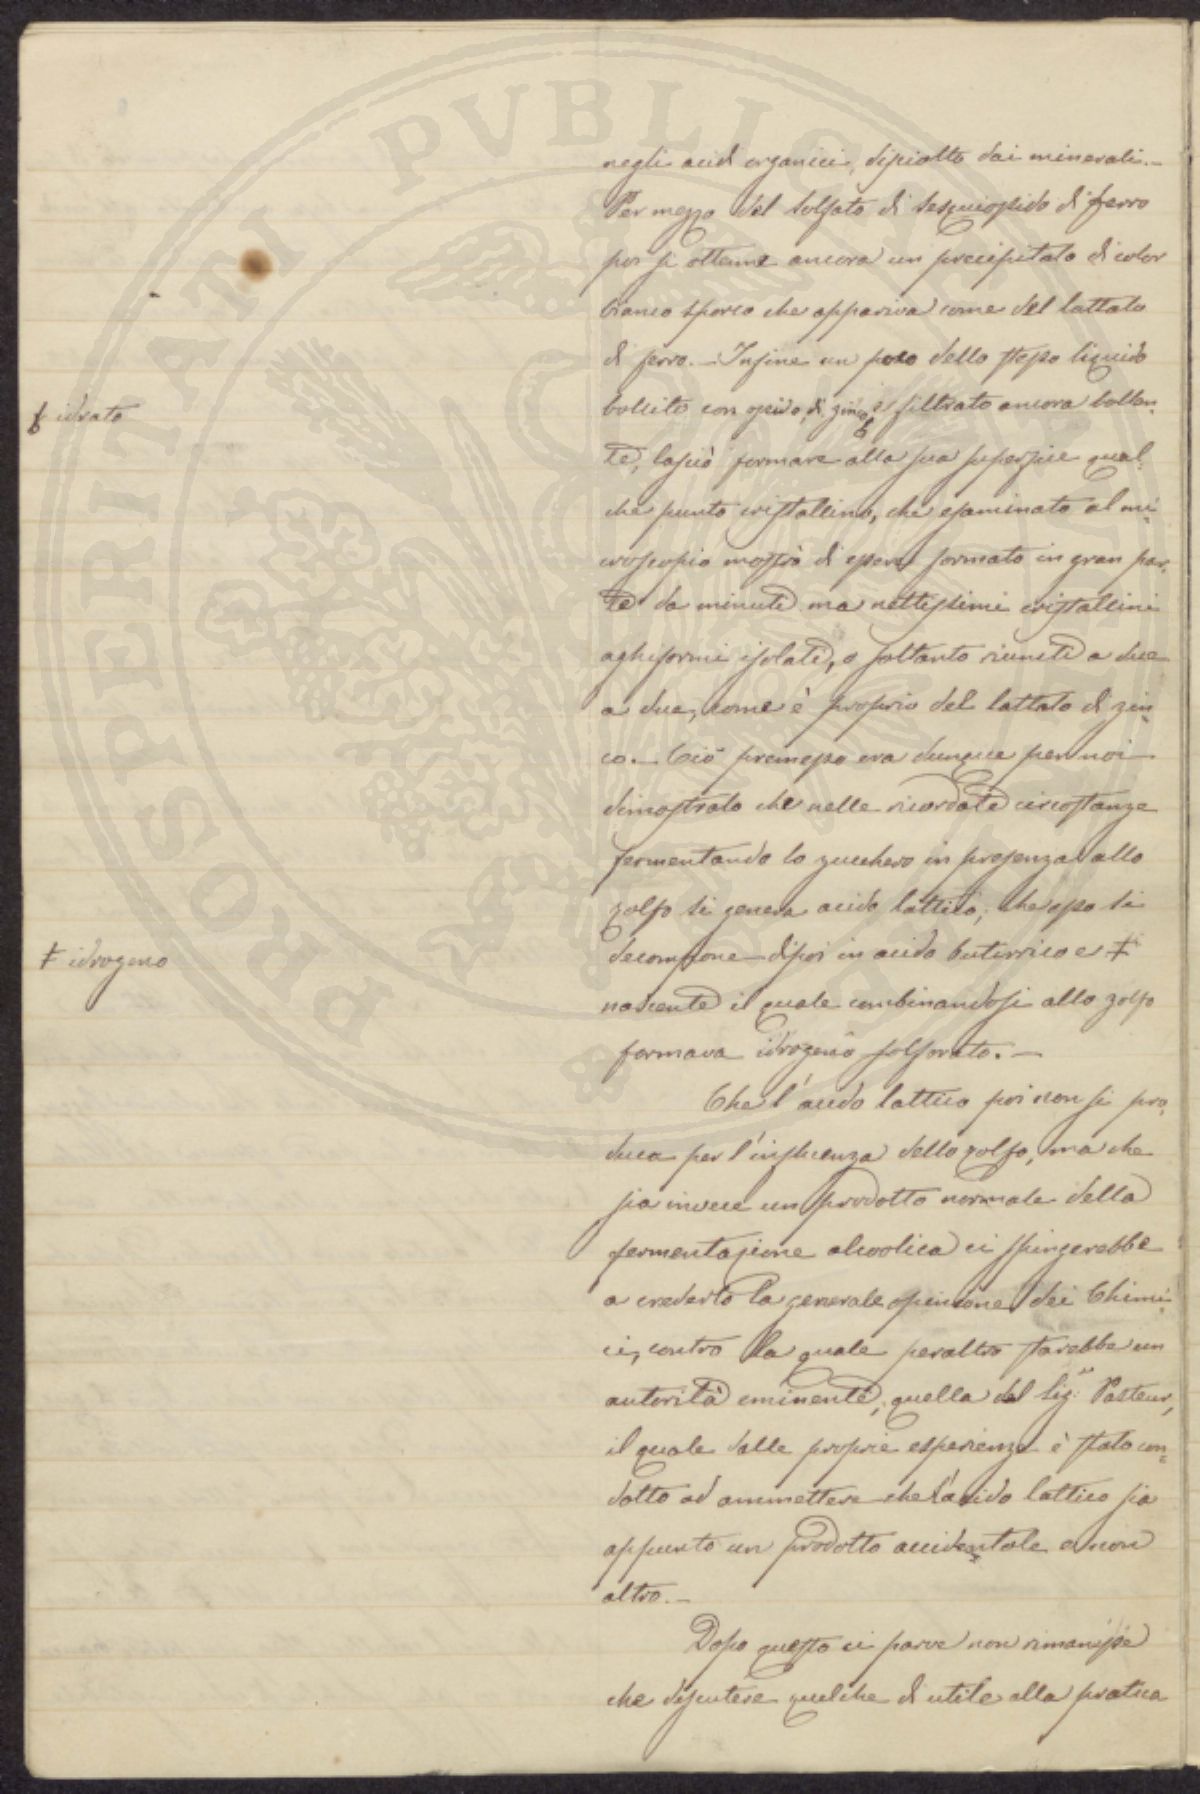 negli acidi organici, disciolto dai minerali.—
Per mezzo del solfato di sesquiossido di ferro
poi si ottenne ancora un precipitato di color
bianco sporco che appariva come del lattato
di ferro.— Infine un poco dello stesso liquido
bollito con ossido di zinco e filtrato ancora bollen-
te, lasciò formare alla sua superficie qual-
che punto cristallino, che esaminato al mi-
croscopio mostrò di essere formato in gran par-
te da minute ma nettissimi cristallini
aghiformi isolate, o soltanto riunite a due
a due, come è proprio del lattato di zin-
co.— Ciò premesso era dunque per noi
dimostrato che nelle ricordate circostanze
fermentando lo zucchero in presenza allo
zolfo si genera acido lattico, che esso si
decompone dipoi in acido butirrico e ‡
nascente il quale combinandosi allo zolfo
formava idrogeno solforato.—
Che l'acido lattico poi non si pro-
duca per l'influenza dello zolfo, ma che
sia invece un prodotto normale della
fermentazione alcoolica ci spingerebbe
a crederlo la generale opinione dei Chimi-
ci, contro la quale peraltro starebbe un
autorità eminente, quella del Sig.r Pasteur,
il quale dalle proprie esperienze è stato con-
dotto ad ammettere che l'acido lattico sia
appunto un prodotto accidentale e non
altro.—
Dopo questo ci parve non rimanesse
che discutere qualche di utile alla pratica
idrato
‡ idrogeno
PROSPERITATI PVBLICAE